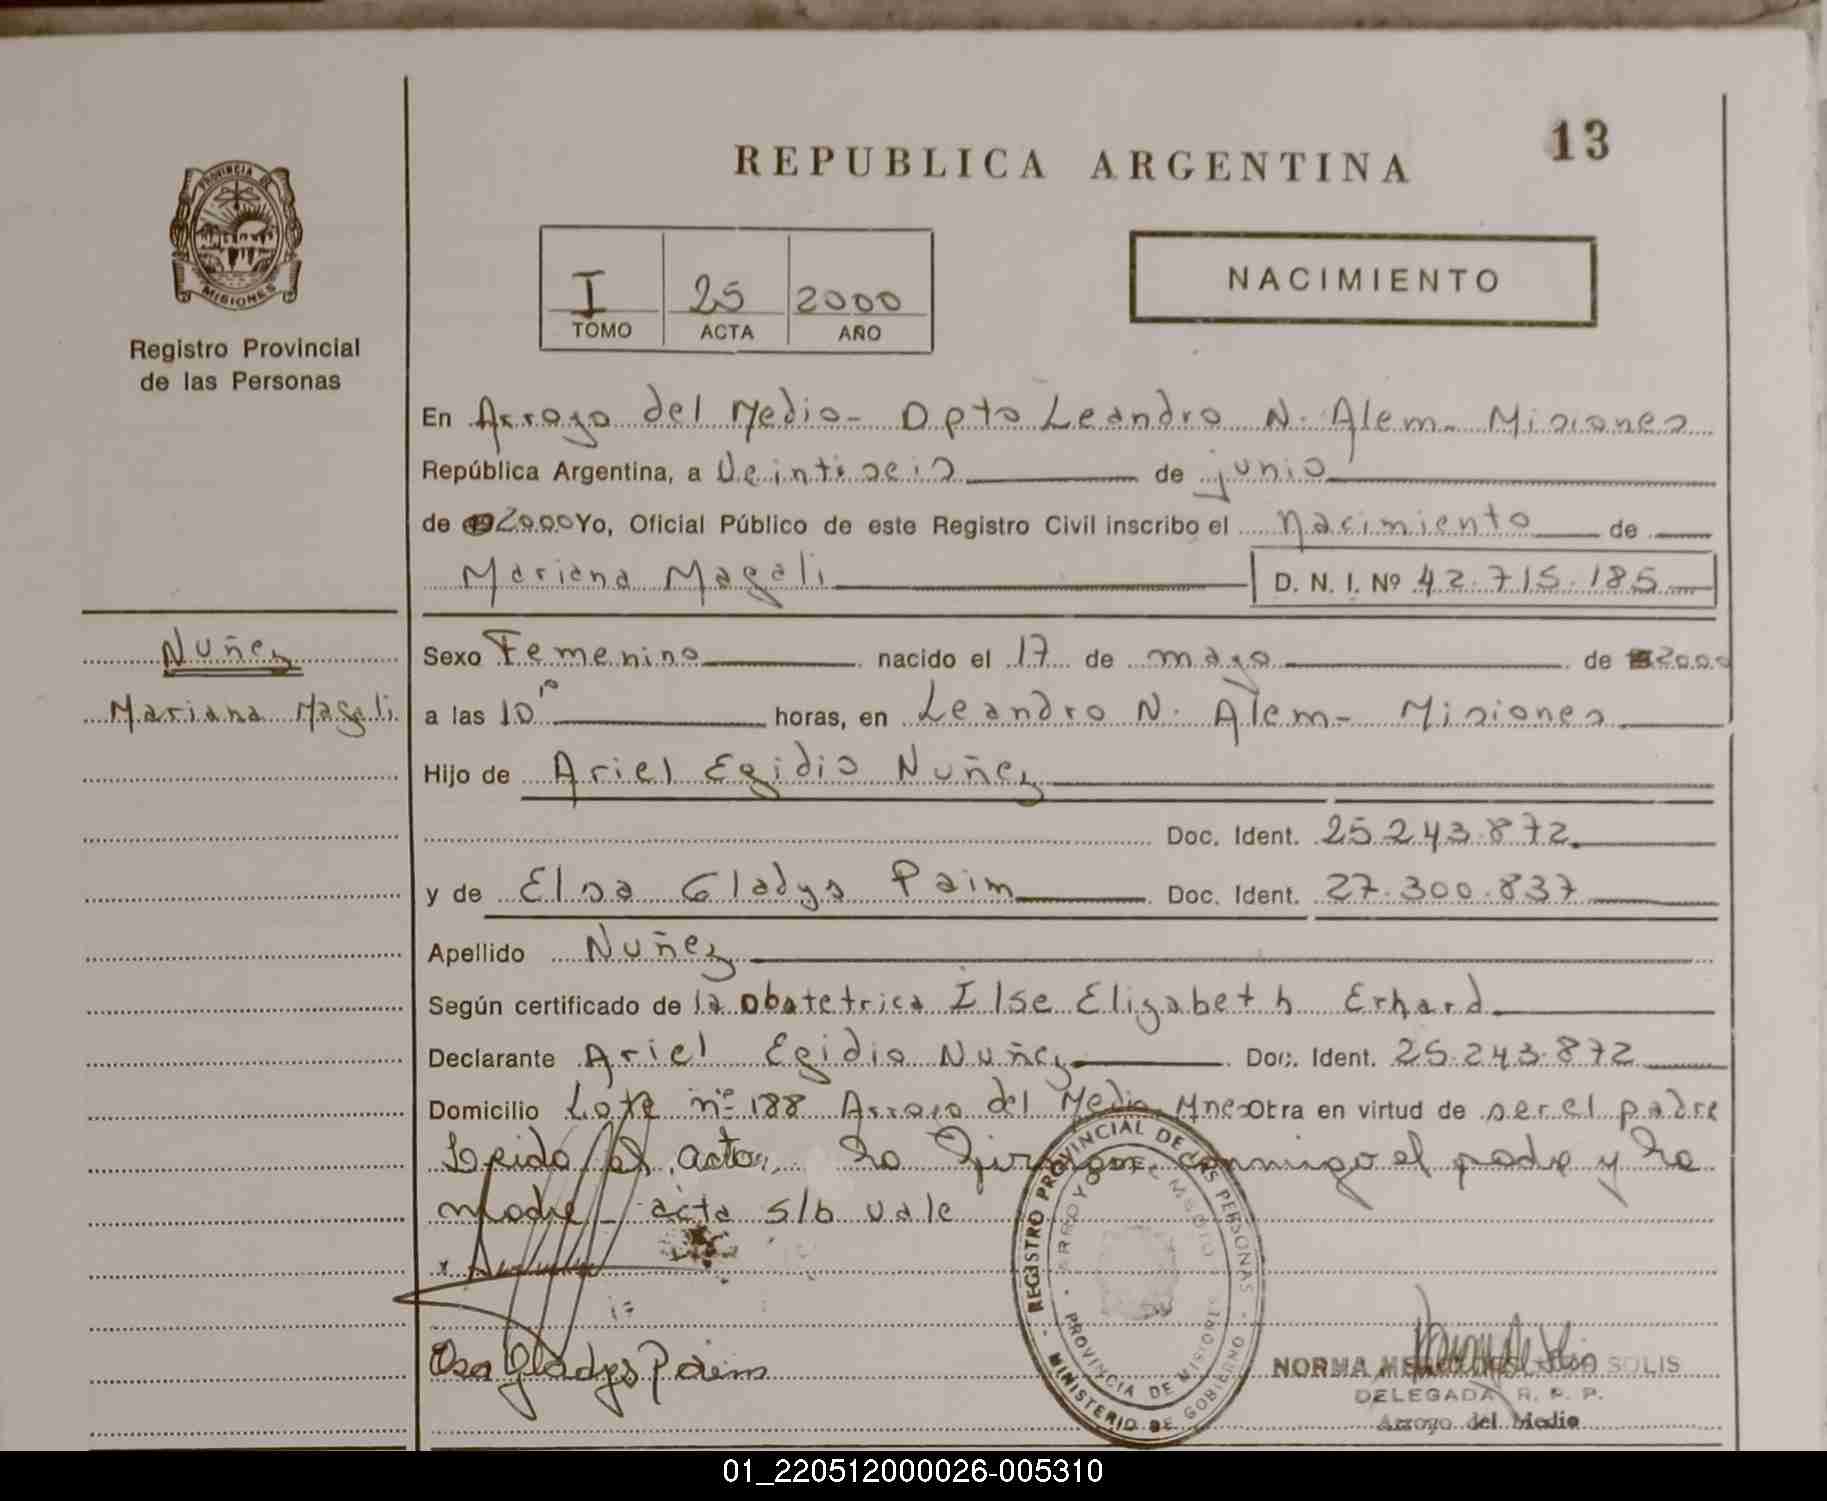 13
REPUBLICA ARGENTINA
PROVINCIA DE
MISIONES
Registro Provincial
de las Personas
I 25 2000
TOMO ACTA AÑO
NACIMIENTO
En Arroyo del Medio - Dpto Leandro N. Alem - Misiones
República Argentina, a Veintiseis de junio
de 2000 Yo, Oficial Público de este Registro Civil inscribo el nacimiento de
Mariana Magali D. N. I. Nº 42.715.185
Nuñez
Mariana Magali
Sexo Femenino nacido el 17 de mayo de 2000
a las 10 horas, en Leandro N. Alem - Misiones
Hijo de Ariel Egidio Nuñez
Doc. Ident. 25.243.872
y de Elsa Gladys Paim Doc. Ident. 27.300.837
Apellido Nuñez
Según certificado de la obstetrica Ilse Elizabeth Erhard
Declarante Ariel Egidio Nuñez Doc. Ident. 25.243.872
Domicilio Lote nº 188 Arroyo del Medio Mnes Obra en virtud de ser el padre
Leida el acta, la firman conmigo el padre y la
madre - acta s/b vale
Gladys Paim
REGISTRO PROVINCIAL DE LAS PERSONAS - MINISTERIO DE GOBIERNO -
ARROYO DEL MEDIO - PROVINCIA DE MISIONES
NORMA SOLIS
DELEGADA R. P. P.
Arroyo del Medio
01_220512000026-005310